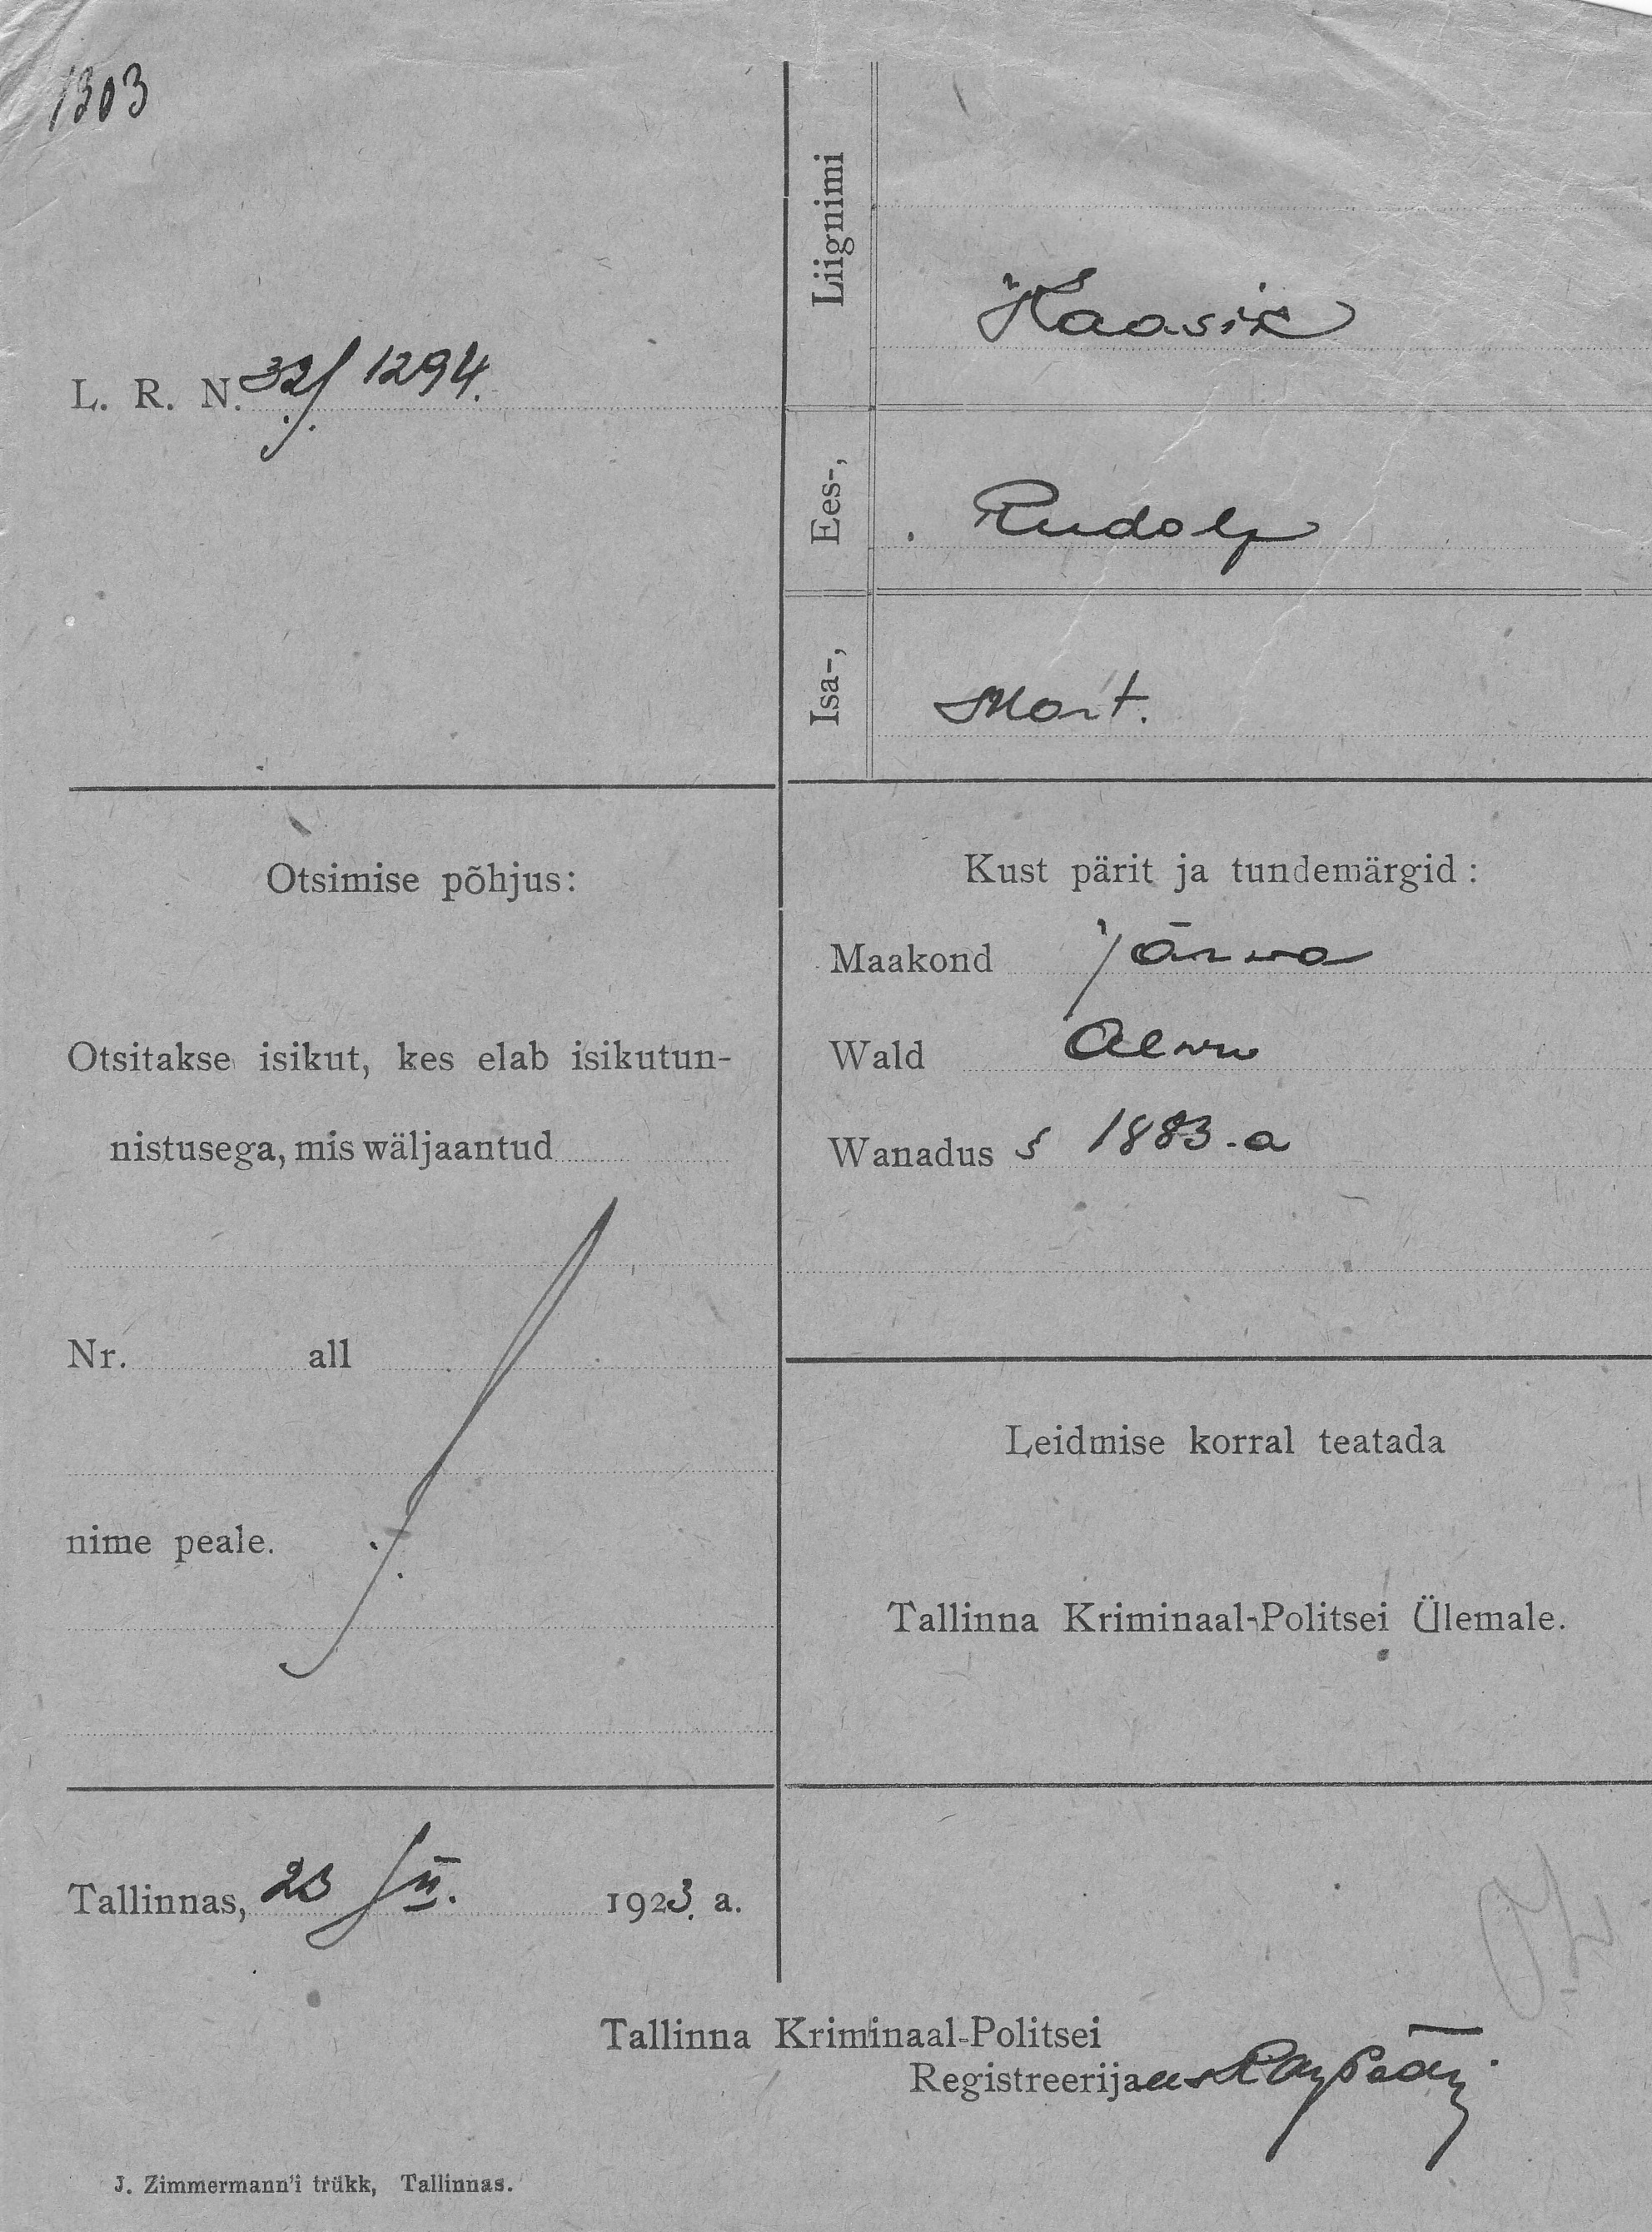 1303
L. R. N. 32/1294.
Liignimi
Haasik
Ees-,
Rudolf
Isa-,
Mart.
Otsimise põhjus:
Otsitakse isikut, kes elab isikutun-
nistusega, mis wäljaantud
Nr. all
nime peale.
Kust pärit ja tundemärgid:
Maakond Järwa
Wald
Wanadus s 1883-a
Leidmise korral teatada
Tallinna Kriminaal-Politsei Ülemale.
Tallinnas, 23/II. 1923. a.
Tallinna Kriminaal-Politsei
Registreerija
J. Zimmermann'i trükk, Tallinnas.